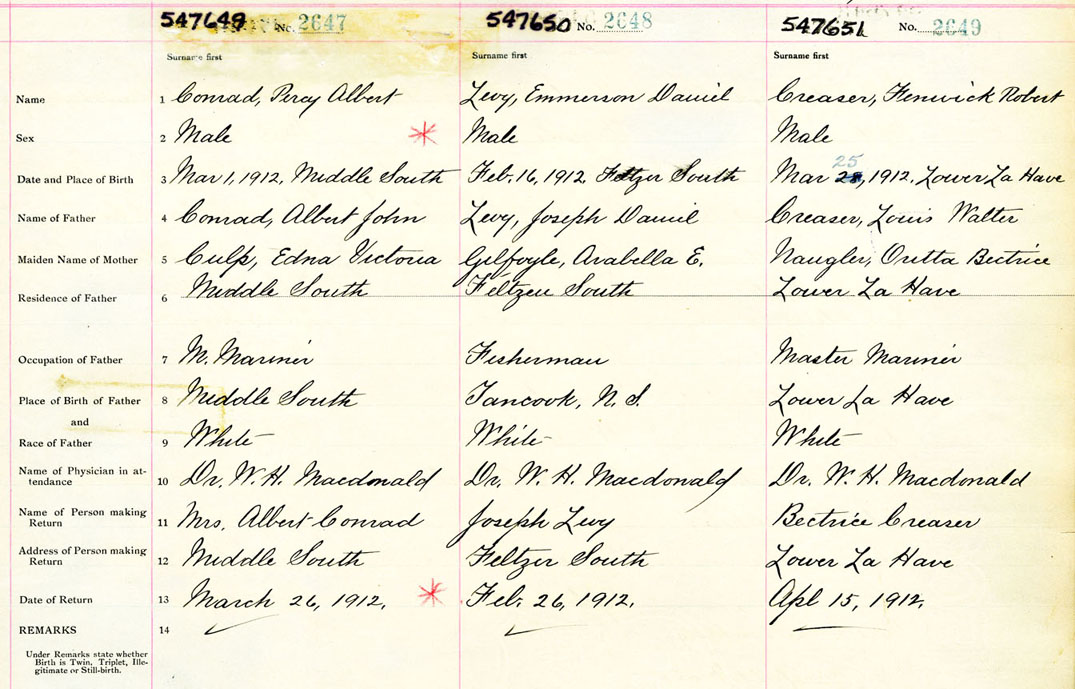 547649 No. 2647 547650 No. 2648 547651 No. 2649
Surname first Surname first Surname first
Name 1 Conrad, Percy Albert Levy, Emmerson Daniel Creaser, Fenwick Robert
Sex 2 Male * Male Male
25
Date and Place of Birth 3 Mar 1, 1912, Middle South Feb. 16, 1912 Feltzer South Mar 28, 1912, Lower La Have
Name of Father 4 Conrad, Albert John Levy, Joseph Daniel Creaser, Louis Walter
Maiden Name of Mother 5 Culp, Edna Victoria Gilfoyle, Arabella E. Naugler, Oretta Bectrice
Residence of Father 6 Middle South Feltzen South Lower La Have
Occupation of Father 7 M. Mariner Fisherman Master Mariner
Place of Birth of Father 8 Middle South Tancook, N.S. Lower La Have
and
Race of Father 9 White White White
Name of Physician in at-
tendance 10 Dr. W. H. Macdonald Dr. W. H. Macdonald Dr. W. H. Macdonald
Name of Person making
Return 11 Mrs. Albert Conrad Joseph Levy Bectrice Creaser
Address of Person making
Return 12 Middle South Feltzer South Lower La Have
Date of Return 13 March 26, 1912. * Feb. 26, 1912. Apl 15, 1912.
REMARKS 14
Under Remarks state whether
Birth is Twin, Triplet, Ille-
gitimate or Still-birth.